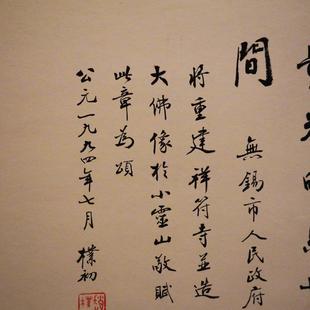 間
無錫市人民政府
將重建祥符寺並造
大佛像於小靈山敬賦
此章為頌
公元一九九四年七月 樸初